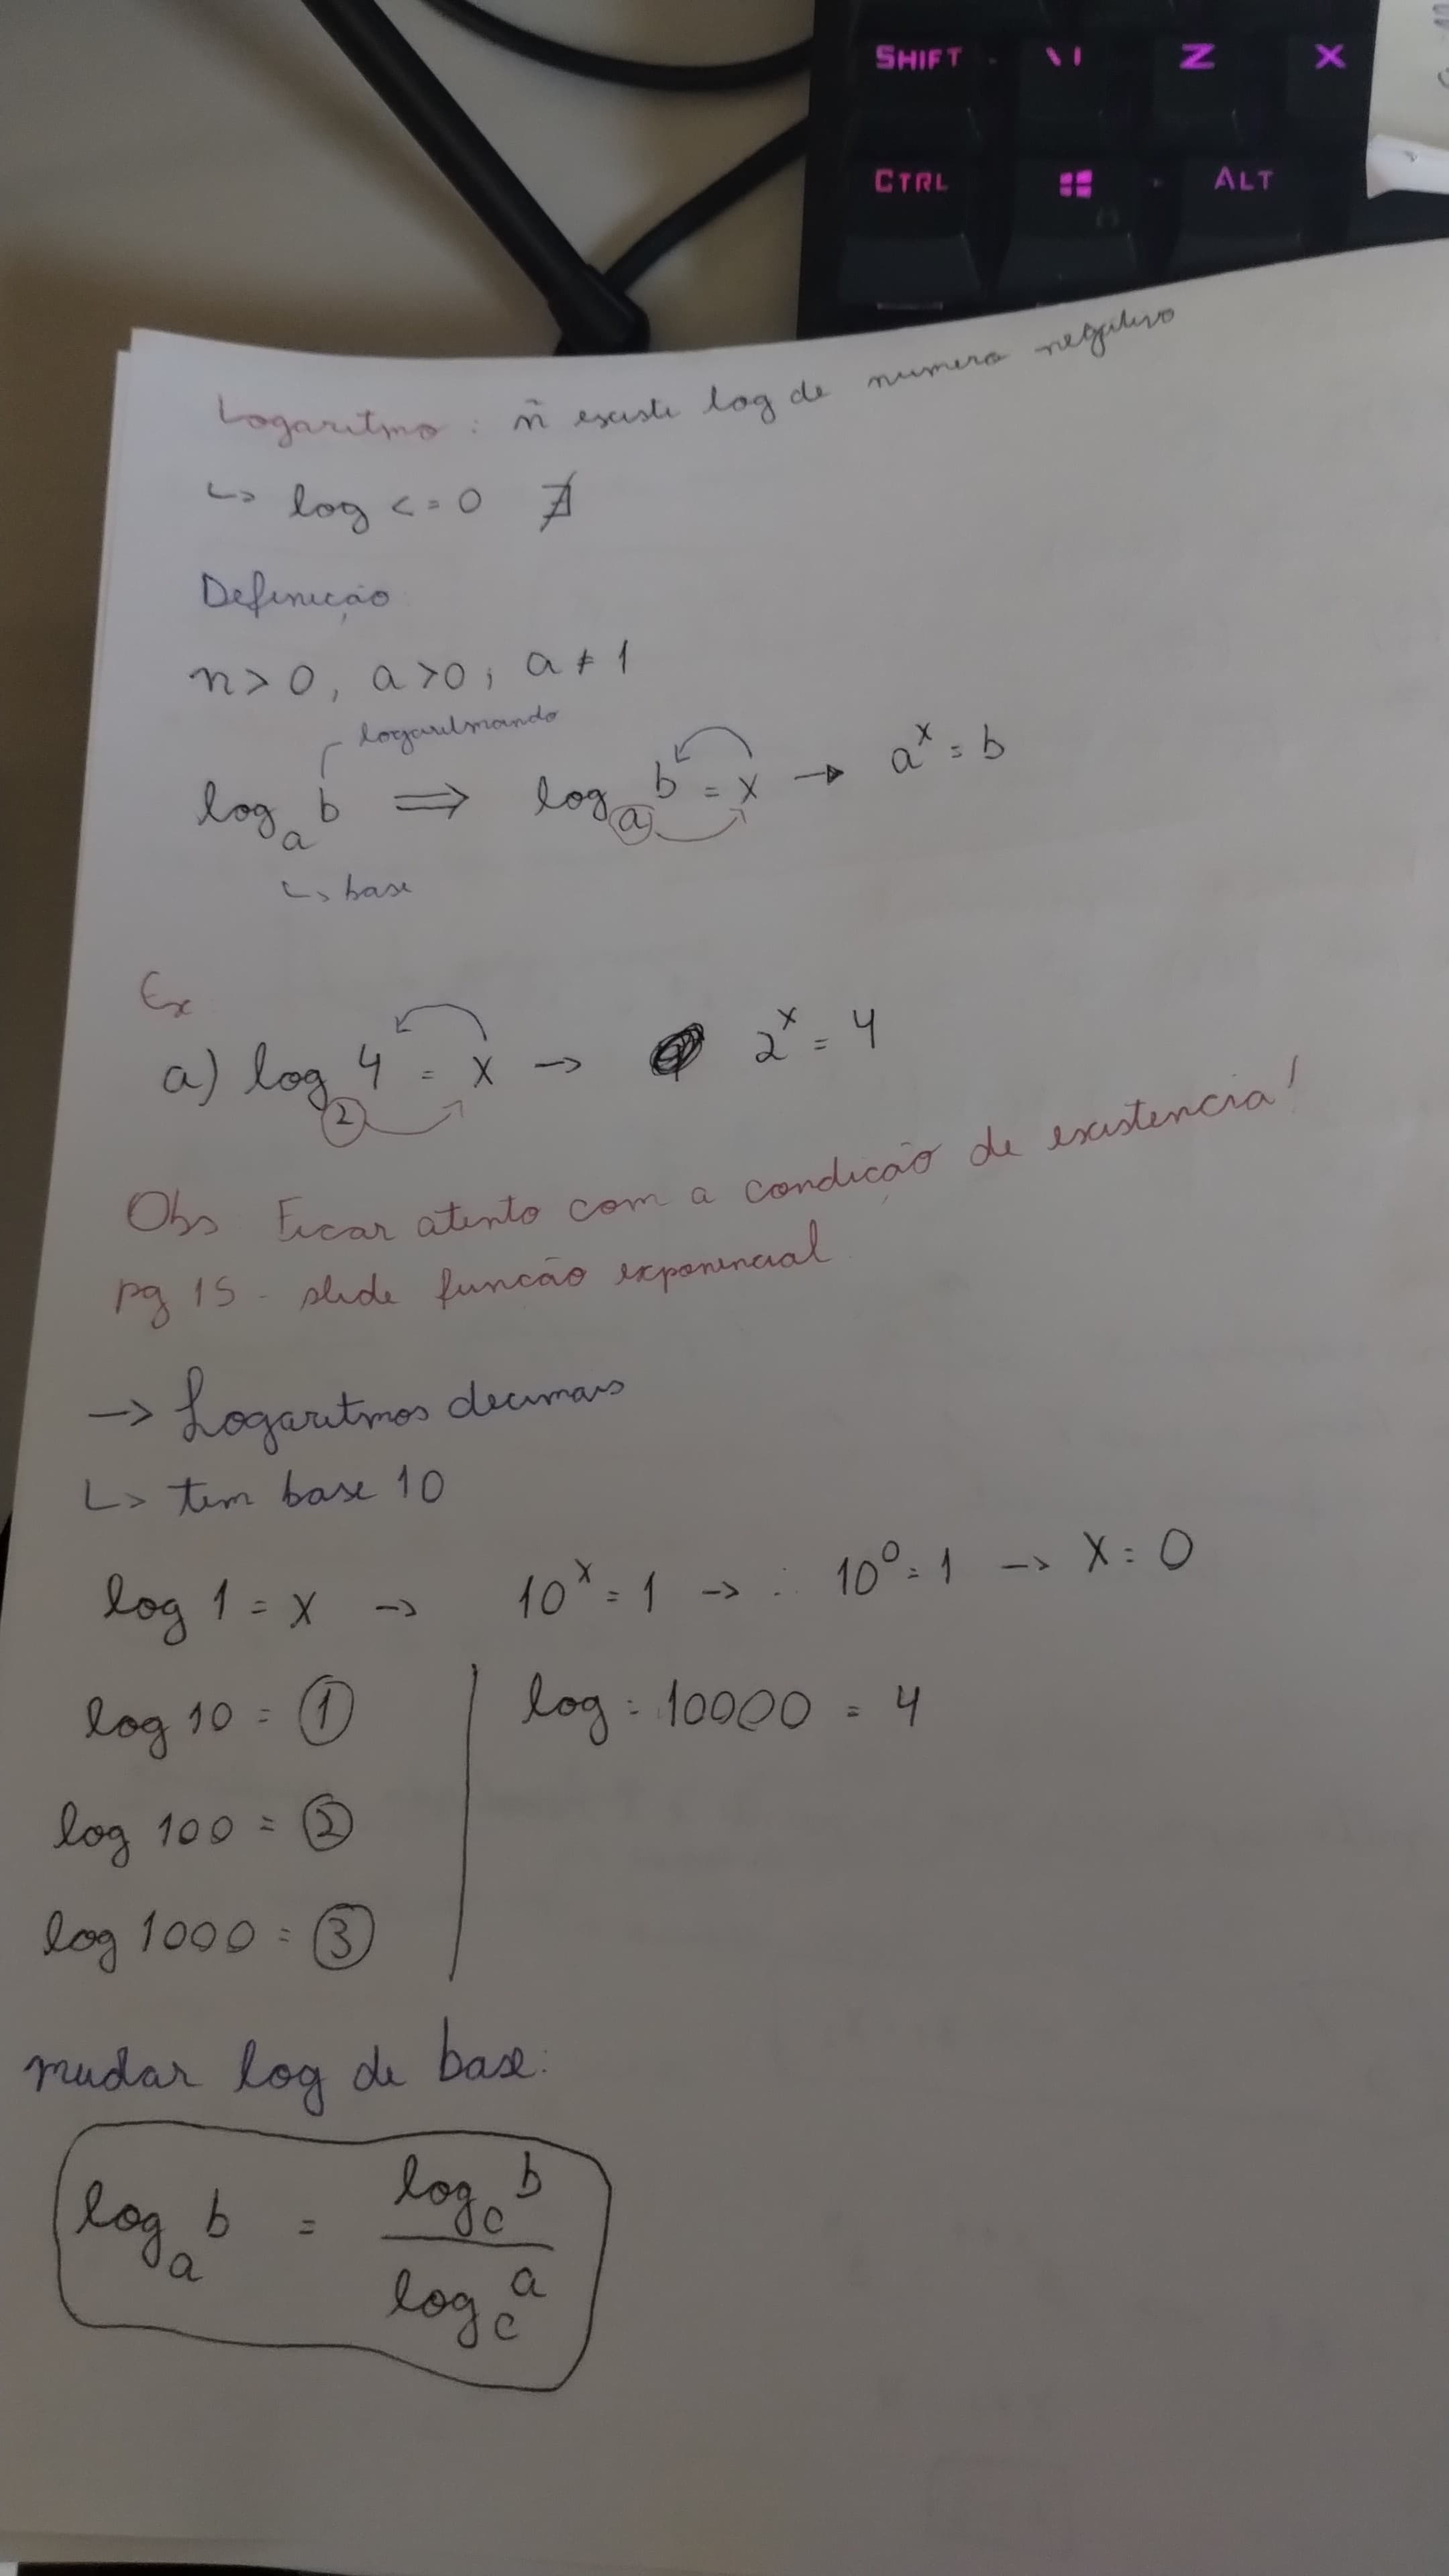 SHIFT \ | Z X
CTRL ALT
Logaritmo: ñ existe log de numero negativo
↳ log <= 0 ∄
Definição
n > 0, a > 0, a ≠ 1
logaritmando
logₐ b ⟹ logₐ b = x → aˣ = b
↳ base
Ex
a) log₂ 4 = x → 2ˣ = 4
Obs Ficar atento com a condição de existencia!
pg 15 - slide função exponencial
→ Logaritmos decimais
↳ tem base 10
log 1 = x → 10ˣ = 1 → ∴ 10⁰ = 1 → x = 0
log 10 = 1
log 100 = 2
log 1000 = 3
log = 10000 = 4
mudar log de base:
logₐ b = log_c b / log_c a